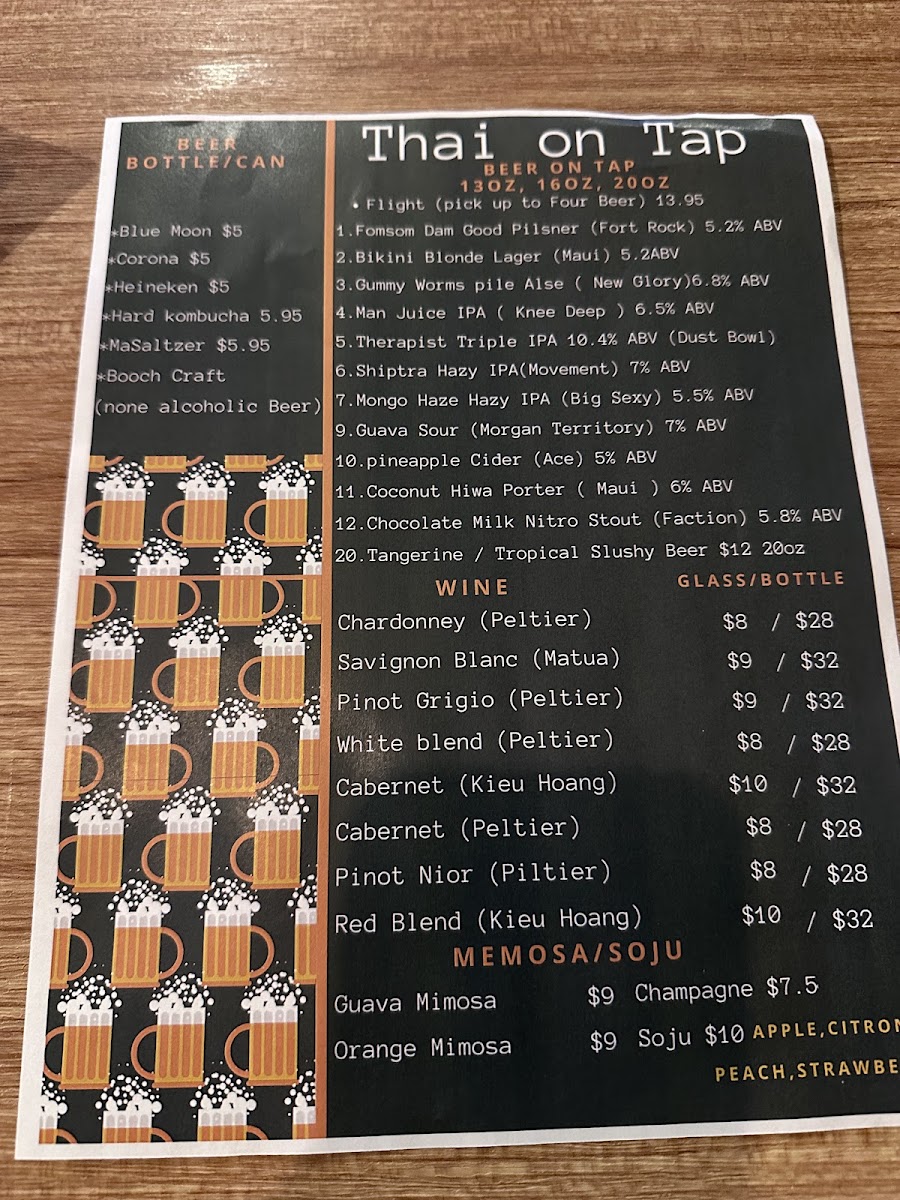 BEER
BOTTLE/CAN
*Blue Moon $5
*Corona $5
*Heineken $5
*Hard kombucha 5.95
*MaSaltzer $5.95
*Booch Craft
(none alcoholic Beer)
Thai on Tap
BEER ON TAP
13OZ, 16OZ, 20OZ
• Flight (pick up to Four Beer) 13.95
1.Fomsom Dam Good Pilsner (Fort Rock) 5.2% ABV
2.Bikini Blonde Lager (Maui) 5.2ABV
3.Gummy Worms pile Alse ( New Glory)6.8% ABV
4.Man Juice IPA ( Knee Deep ) 6.5% ABV
5.Therapist Triple IPA 10.4% ABV (Dust Bowl)
6.Shiptra Hazy IPA(Movement) 7% ABV
7.Mongo Haze Hazy IPA (Big Sexy) 5.5% ABV
9.Guava Sour (Morgan Territory) 7% ABV
10.pineapple Cider (Ace) 5% ABV
11.Coconut Hiwa Porter ( Maui ) 6% ABV
12.Chocolate Milk Nitro Stout (Faction) 5.8% ABV
20.Tangerine / Tropical Slushy Beer $12 20oz
WINE GLASS/BOTTLE
Chardonney (Peltier) $8 / $28
Savignon Blanc (Matua) $9 / $32
Pinot Grigio (Peltier) $9 / $32
White blend (Peltier) $8 / $28
Cabernet (Kieu Hoang) $10 / $32
Cabernet (Peltier) $8 / $28
Pinot Nior (Piltier) $8 / $28
Red Blend (Kieu Hoang) $10 / $32
MEMOSA/SOJU
Guava Mimosa $9 Champagne $7.5
Orange Mimosa $9 Soju $10 APPLE,CITRON
PEACH,STRAWBE